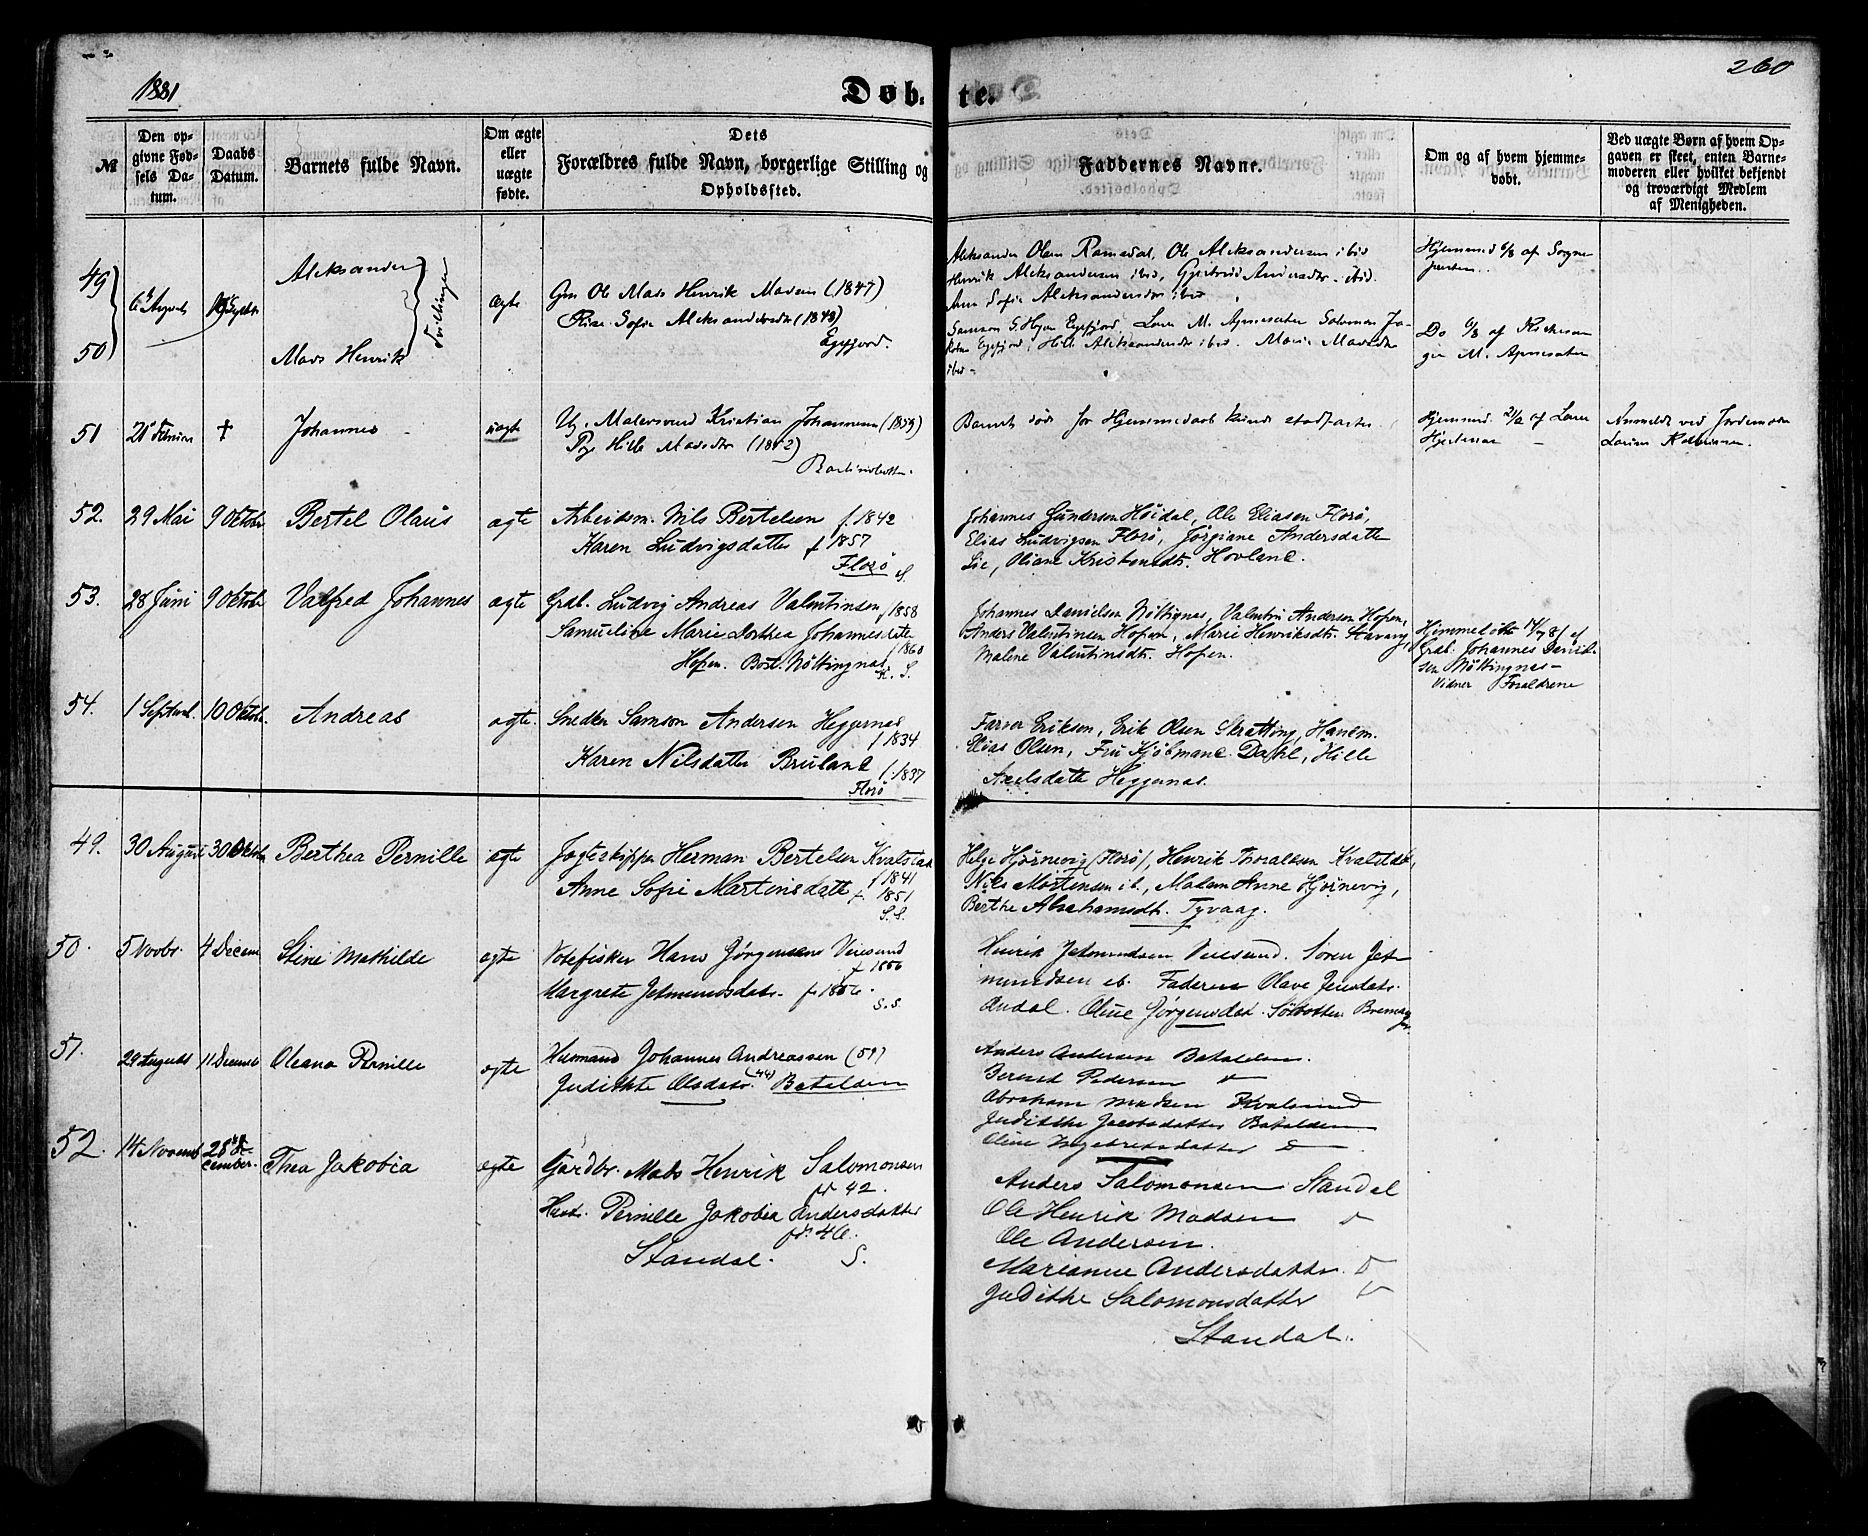 1881
Døbte.
260
№
Den opgivne Fødsels Datum.
Daabs Datum.
Barnets fulde Navn.
Om ægte eller uægte fødte.
Dets Forældres fulde Navn, borgerlige Stilling og Opholdssted.
Faddernes Navne.
Om og af hvem hjemmedøbt.
Ved uægte Børn af hvem Opgaven er skeet, enten Barnemoderen eller hvilket bekjendt og troværdigt Medlem af Menigheden.
49
50
6 August
Aleksander
Mads Henrik
Tvillinger
ægte
Gm Ole Mads Henrik Madsen (1847)
Sofie Aleksandersdtr (1848)
Egefjord.
Aleksander Olsen Ramsdal, Ole Aleksandersen ibid
Henrik Aleksandersen ibid, Gjertrud Andersdtr. ibid.
Ane Sofie Aleksandersdtr ibid.
Samson G. Egefjord, Lars M. Solomon Ja-
Egefjord, Hille Aleksandersdtr ibid. Marie Madsdtr
ibid.
Hjemmed 6/8 af Sogne
præsten.
Do 6/8 af Kirkesan
ger M.
51
21 Februar
†
Johannes
uægte
Ug. Kristian Johannesen (1859)
Pge Hille Madsdtr (1842)
Barnet døde før Hjemmedaab kunde stadfæstes.
Hjemmed 21/2 af Lars
Anmeldt ved Jordemoder
52.
29 Mai
9 Oktob
Bertel Olaus
ægte
Arbeidsm. Nils Bertelsen f. 1842
Karen Ludvigsdatter f 1857
Florø S.
Johannes Gundersen Høidal, Ole Eliasen Florø,
Elias Ludvigsen Florø, Jørgiane Andersdatter
Lie, Oliane Kristensdt. Hovland.
53.
28 Juni
9 Oktob
Valfred Johannes
ægte
Grdb. Ludvig Andreas Valentinsen f 1858
Samueline Marie Dorthea Johannesdatter
f 1860
Hopen. Bost. Nøttingnæs
K. S.
Johannes Danielsen Nøttignæs, Valentin Andersen Hopen,
Anders Valentinsen Hopen, Marie Henriksdt. Stavang,
Malene Valentinsdt. Hopen.
Hjemmedøbt af
Grdb. Johannes Daniel-
sen Nøttingnæs-
Vidner Forældrene
54.
1 Septbr.
10 Oktob.
Andreas
ægte.
Snedker Samson Andersen Heggernæs
f 1834
Karen Nilsdatter Bruland f. 1837
Florø
Farver Eriksen, Erik Olsen Skratting, Handm.
Elias Olsen, Fru Kjøbmand Dahl, Hille
Axelsdatter Heggernæs.
49.
30 August
30 Oktob
Berthea Pernille
ægte
Jagteskipper Herman Bertelsen Kvalstad
f 1841
Anne Sofie Martinsdatt f. 1851
S.S.
Helge Hjørnevig (Florø), Henrik Thoralsen Kvalstd,
Nils Mortensen ib., Madam Anne Hjørnevig,
Berthe Abrahamsdt. Tyvaag.
50.
5 Novbr.
4 Decem
Stine Mathilde
ægte
Notefisker Hans Jørgensen Veiesund
f 1856
Margrete Jetmundsdatr. f. 1856.
S.S
Henrik Jetmundsen Veiesund. Søren Jet-
mundsen ib. Faderen Olave Jensdatr.
Andal. Oline Jørgensdat. Sørbotten
51.
29 Augusti
11 Decemb
Oleana Pernille
ægte
Husmand Johannes Andreassen (59)
Judithe Olsdatr. (44) Batalden
Anders Andersen Batalden.
Bernt Pedersen
Abraham Madsen Kvalsund
Judithe Jacobsdatter Batalden
Oline Ingebretsdatter
52.
14 Novemb
25de December.
Thea Jakobia
ægte
Gardbr. Mads Henrik Salomonsen
f. 42.
Hust. Pernille Jakobia Andersdatter
f. 46.
Standal. S.
Anders Salomonsen Standal
Ole Henrik Madsen
Ole Andersen.
Marianne Andersdatter.
Judithe Salomonsdatter
Standal.